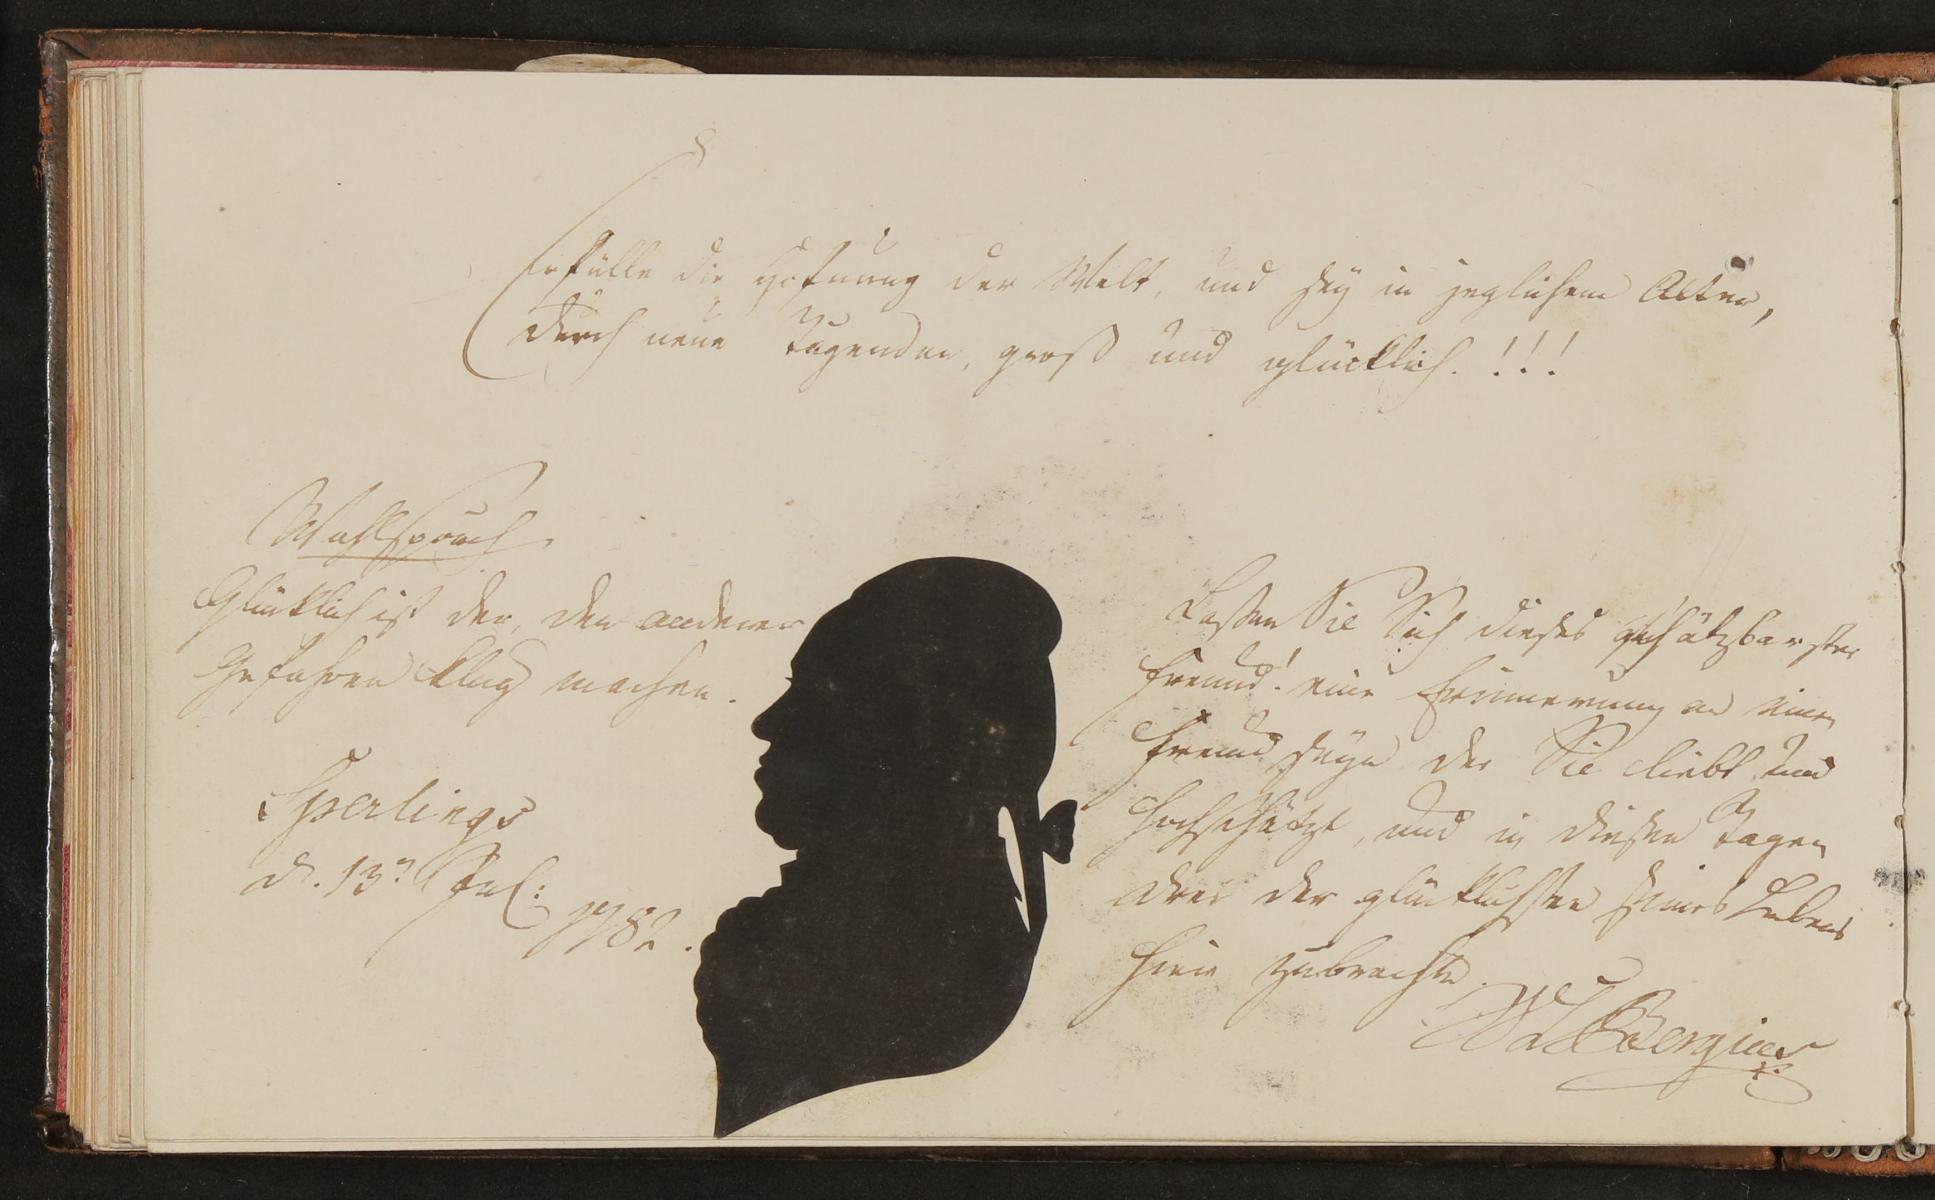 Erfülle die Hofnung der Welt, und sey in jeglichem Alter,
durch neue Tugenden, groß und glücklich.!!!
Wahlspruch
Glücklich ist der, den anderer
Gefahren klug machen.
Sperlings
d. 13n Jul: 1782.
Laßen Sie Sich dieses schätzbarster
Freund! eine Erinnerung an einen
Freund seyn der Sie liebt und
hochschätzt, und in diesen Tagen
drei der glücklichsten seines Lebens
hier zubrachte.
Bergius